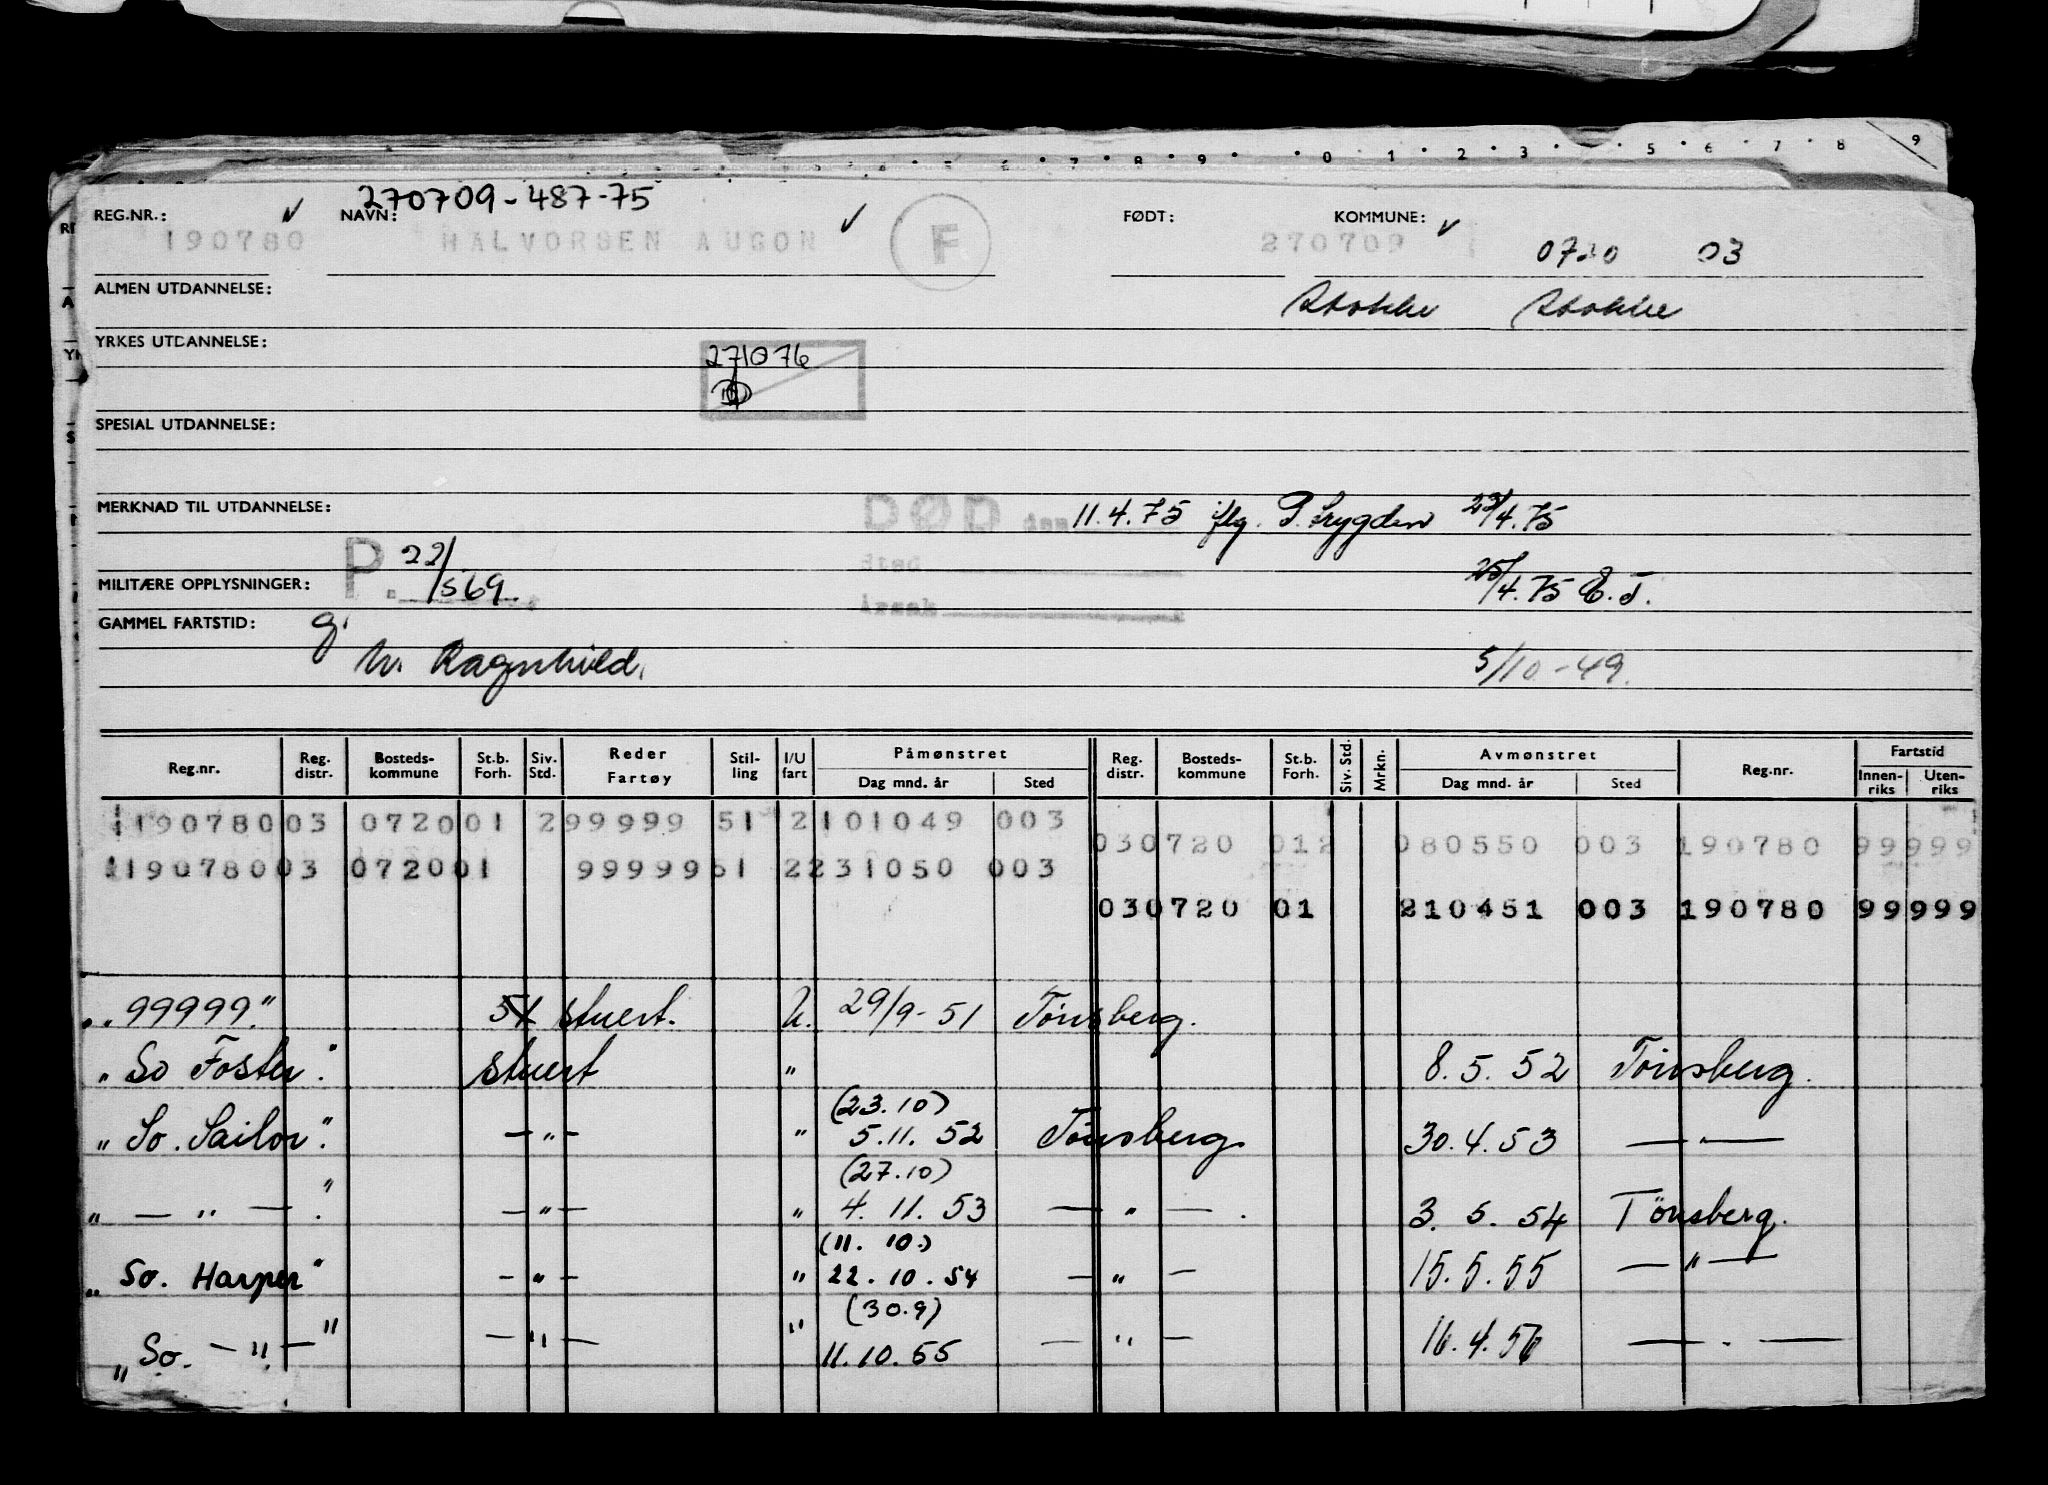 9
0 1 2 3 5 6 7 8
5 6 7 8 9
270709-487-75
REG.NR.: NAVN: FØDT: KOMMUNE:
190780 HALVORSEN AUGON F 270709 03
ALMEN UTDANNELSE:
Stokke Stokke
YRKES UTDANNELSE:
271076
SPESIAL UTDANNELSE:
MERKNAD TIL UTDANNELSE: DØD den 11.4.75 iflg. P. Trygden 23/4.75
Sted
MILITÆRE OPPLYSNINGER: P. 22/569. 25/4.75 E.T.
Årsak
GAMMEL FARTSTID: g.
M. Ragnhild. 5/10-49.
Reg.nr. Reg. distr. Bosteds-kommune St.b. Forh. Siv. Std. Reder Fartøy Stil-ling I/U fart Påmønstret Dag mnd. år Sted Reg. distr. Bosteds-kommune St.b. Forh. Siv. Std. Mrkn. Avmønstret Dag mnd. år Sted Reg.nr. Fartstid Innen-riks Uten-riks
119078003 072001 299999 51 2101049 003
030720 012 080550 003 190780 99999
119078003 072001 9999951 2231050 003
030720 01 210451 003 190780 99999
"99999." 51 stuert. U. 29/9-51 Tønsberg.
"So Foster." stuert " 8.5.52 Tønsberg.
(23.10)
"So. Sailor." — " — " 5.11.52 Tønsberg 30.4.53 — " —
(27.10)
" — " — ." — " — " 4.11.53 — " — . 3.5.54 Tönsberg.
(11.10.)
"So. Harper" — " — " 22.10.54 — " — 15.5.55 — " —
(30.9)
"So. — " — " — " — " 11.10.55 — " — 16.4.56 — " —